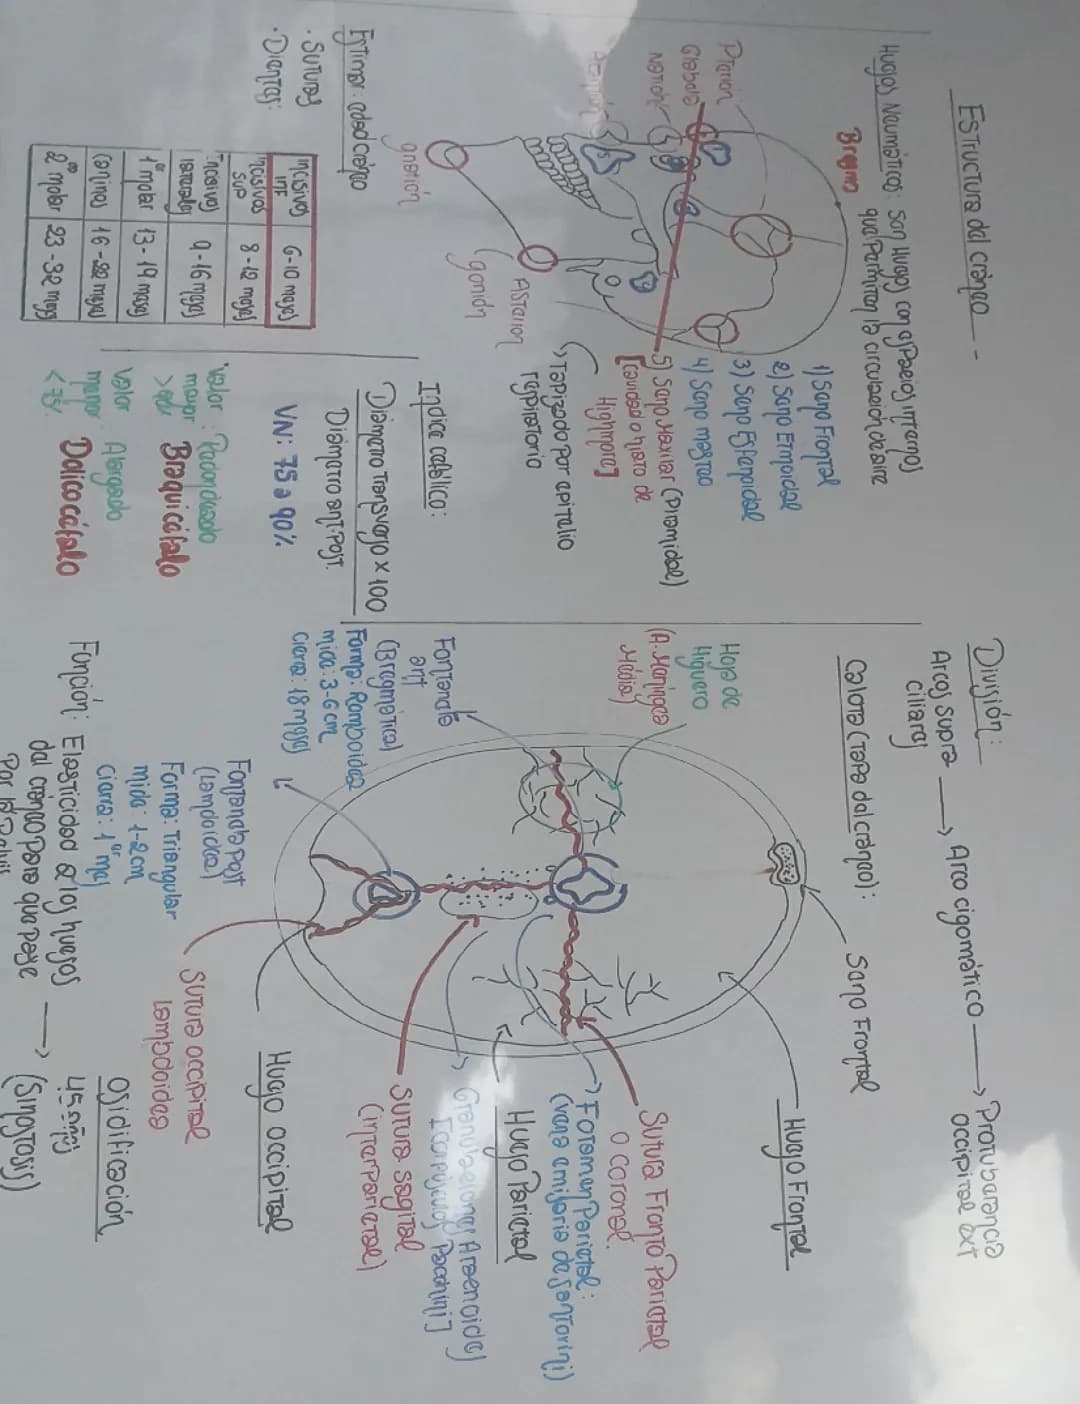 Estructura del cráneo
Huesos Neumáticos: Son Huesos con espacios internos
que Permiten la circulación de aire
Bregma
Pterion
Glabela
Nasion
1) Seno Frontal
2) Seno Etmoidal
3) Seno Esfenoidal
4) Seno mastoo
5) Seno Maxilar (Piramidal)
[cavidad o hiato de
Highmore]
Tapizado por epitelio
respiratorio
Asterion
(gonión
gnatión
Estimar: edad cráneo
· Suturas
· Dientes:
Incisivos INF 6-10 meses
Incisivos SUP 8-12 meses
Incisivos laterales 9-16 meses
1er molar 13-19 meses
Caninos 16-22 meses
2do molar 23-32 meses
Indice cefálico:
Diámetro Transverso x 100
Diámetro ant-Post.
VN: 75 a 90%
Valor mayor : Redondeado
Braquicéfalo
Valor menor : Alargado
< 75% Dolicocéfalo
División:
Arcos Supra ciliares → Arco cigomático → Protuberancia occipital ext
Calota (Tapa del cráneo):
Seno Frontal
Hueso Frontal
Hoja de
Higuera
(A. Meningea
Media)
Sutura Fronto Parietal
o coronal.
Foramen Parietal:
(vena emisaria de Santorini)
Hueso Parietal
Granulaciones Aracnoides
Pacchini]
Sutura sagital
(interparietal)
Hueso occipital
Sutura occipital
Lambdoidea
Fontanela
ant
(Bregmática)
Forma: Romboidea
mide: 3-6 cm
cierra: 18 meses
Fontanela Post
(lambdoidea)
Forma: Triangular
mide: 1-2 cm
cierra: 1er mes
Función: Elasticidad a los huesos
del cráneo para que pase
Por la Pelvis
Osificación
45 años
(Sinostosis)